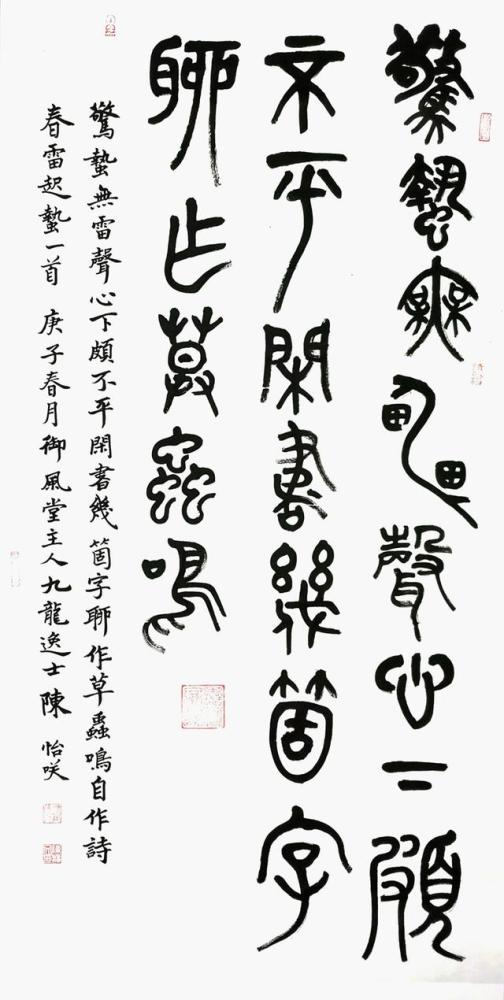 驚蟄無雷聲心下頗
不平閑書幾箇字
聊作草蟲鳴
驚蟄無雷聲心下頗不平閑書幾箇字聊作草蟲鳴自作詩
春雷起蟄一首 庚子春月御風堂主人九龍逸士陳怡咲